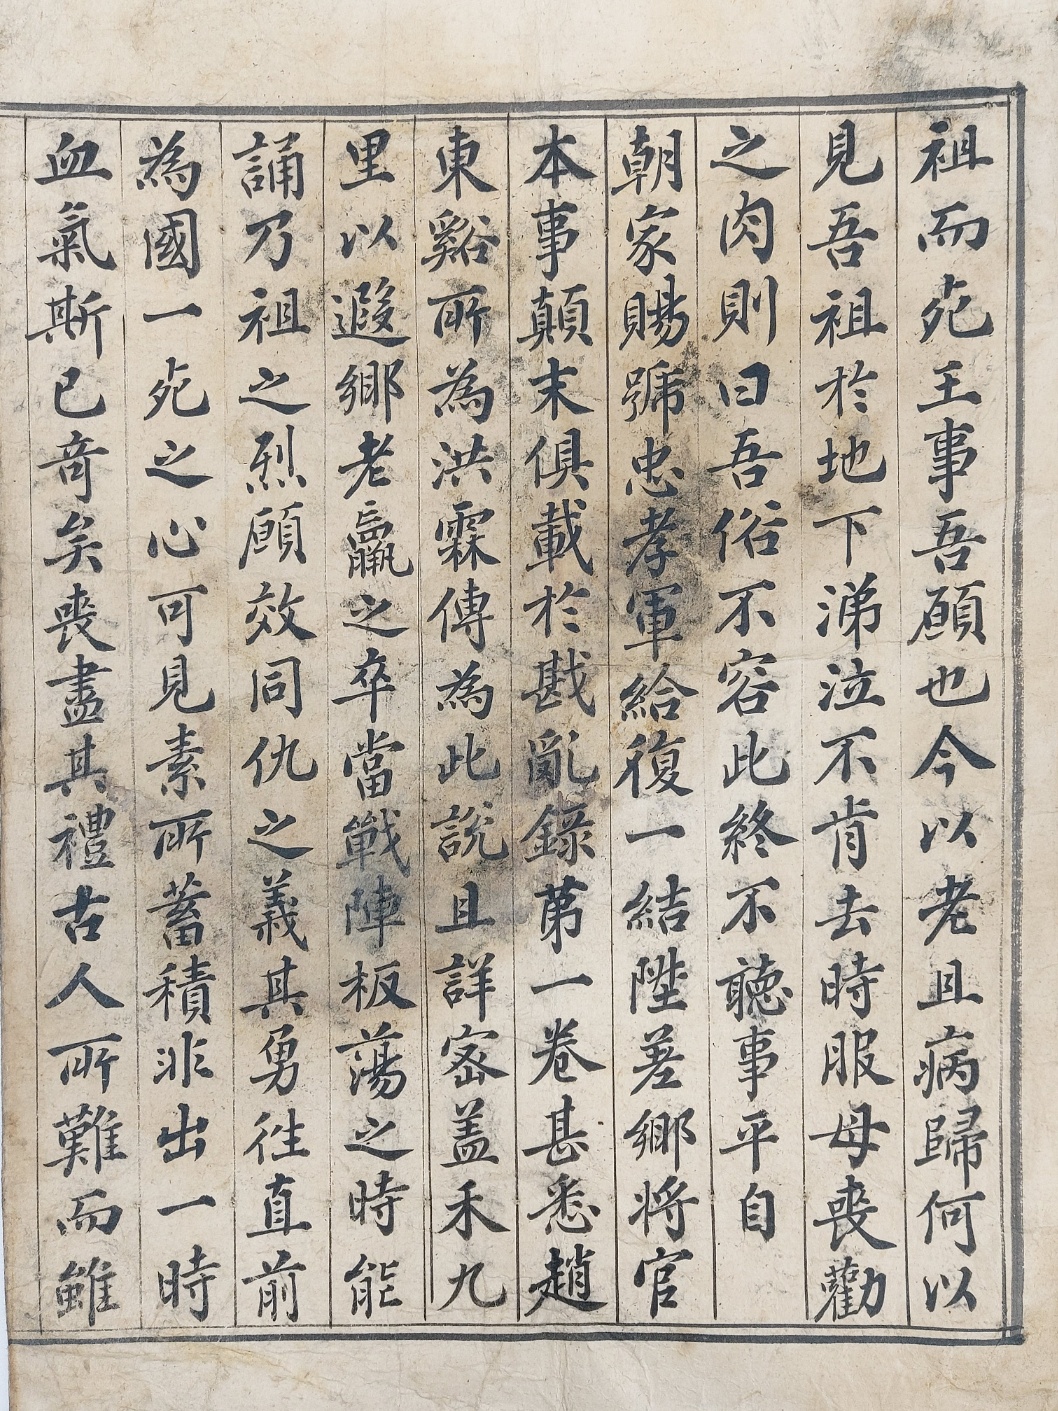 祖而死王事吾願也今以老且病歸何以
見吾祖於地下涕泣不肯去時服母喪勸
之肉則曰吾俗不容此終不聽事平自
朝家賜號忠孝軍給復一結陞差鄉將官
本事顛末俱載於戡亂錄第一卷甚悉趙
東谿所為洪霖傳為此說且詳密盖禾九
里以遐鄉老羸之卒當戰陣板蕩之時能
誦乃祖之烈願效同仇之義其勇往直前
為國一死之心可見素所蓄積非出一時
血氣斯已奇矣喪盡其禮古人所難而雖